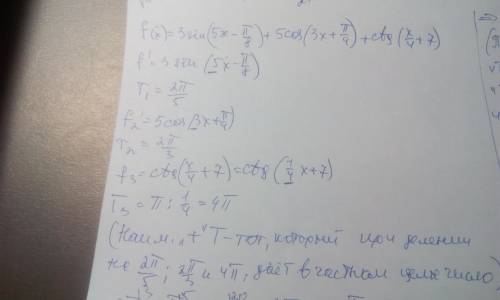 f(x)=3sin(5x-π/8)+5cos(3x+π/4)+ctg(x/4+7)
f'=3sin(5x-π/8)
T₁=2π/5
f₂'=5cos(3x+π/4)
T₂=2π/3
f₃=ctg(x/4+7)=ctg(1/4x+7)
T₃=π:1/4=4π
(Наим. "+" T-тот, который при делении
на 2π/5; 2π/3 и 4π, даёт в частном целое число)